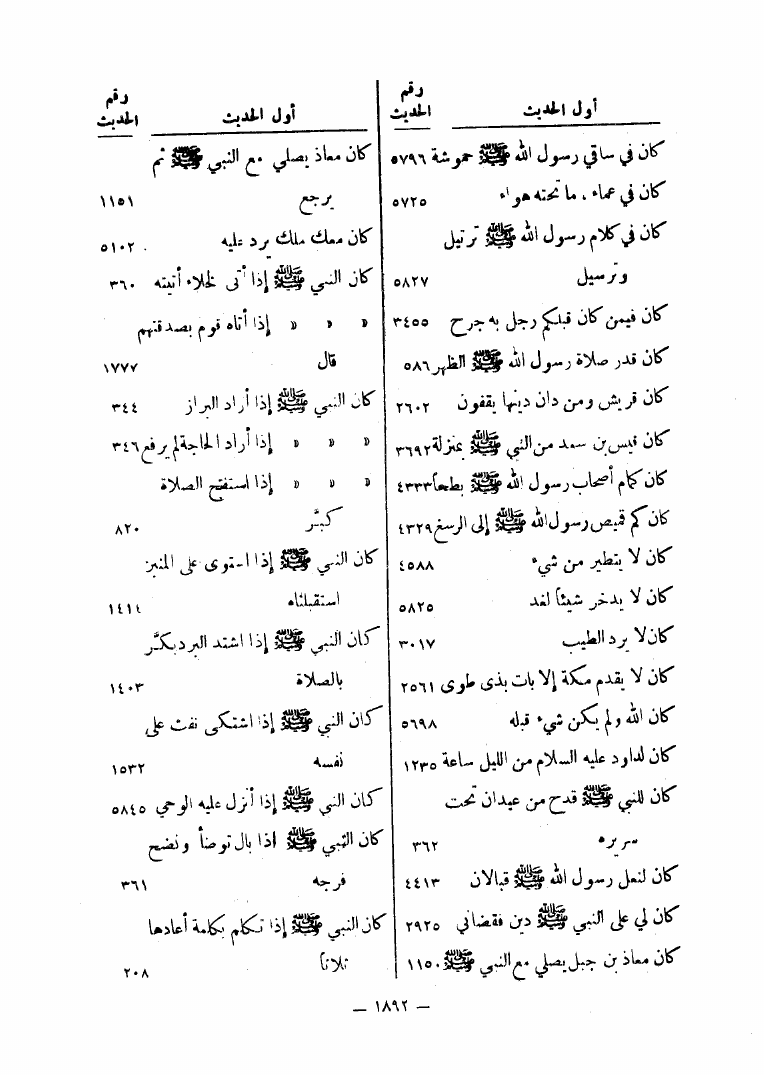 أول الحديث رقم الحديث
كان في ساقي رسول الله ﷺ حموشة ٥٧٩٦
كان في عماء ، ما تحته هواء ٥٧٢٥
كان في كلام رسول الله ﷺ ترتيل
وترسيل ٥٨٢٧
كان فيمن كان قبلكم رجل به جرح ٣٤٥٥
كان قدر صلاة رسول الله ﷺ الظهر ٥٨٦
كان قريش ومن دان دينها يقفون ٢٦٠٢
كان قيس بن سعد من النبي ﷺ بمنزلة ٣٦٩٢
كان كمام أصحاب رسول الله ﷺ بطحاً ٤٣٣٣
كان كم قميص رسول الله ﷺ إلى الرسغ ٤٣٢٩
كان لا يتطير من شيء ٤٥٨٨
كان لا يدخر شيئاً لغد ٥٨٢٥
كان لا يرد الطيب ٣٠١٧
كان لا يقدم مكة إلا بات بذى طوى ٢٥٦١
كان الله ولم يكن شيء قبله ٥٦٩٨
كان لداود عليه السلام من الليل ساعة ١٢٣٥
كان للنبي ﷺ قدح من عيدان تحت
سريره ٣٦٢
كان لنعل رسول الله ﷺ قبالان ٤٤١٣
كان لي على النبي ﷺ دين فقضاني ٢٩٢٥
كان معاذ بن جبل يصلي مع النبي ﷺ ١١٥٠
أول الحديث رقم الحديث
كان معاذ يصلي مع النبي ﷺ ثم
يرجع ١١٥١
كان معك ملك يرد عليه ٥١٠٢
كان النبي ﷺ إذا أتى الخلاء أتيته ٣٦٠
« « « إذا أتاه قوم بصدقتهم
قال ١٧٧٧
كان النبي ﷺ إذا أراد البراز ٣٤٤
« « « إذا أراد الحاجة لم يرفع ٣٤٦
« « « إذا استفتح الصلاة
كبَّر ٨٢٠
كان النبي ﷺ إذا استوى على المنبر
استقبلناه ١٤١٤
كان النبي ﷺ إذا اشتد البرد بكَّر
بالصلاة ١٤٠٣
كان النبي ﷺ إذا اشتكى نفث على
نفسه ١٥٣٢
كان النبي ﷺ إذا أنزل عليه الوحي ٥٨٤٥
كان النبي ﷺ إذا بال توضأ ونضح
فرجه ٣٦١
كان النبي ﷺ إذا تكلم بكلمة أعادها
ثلاثاً ٢٠٨
— ١٨٩٢ —